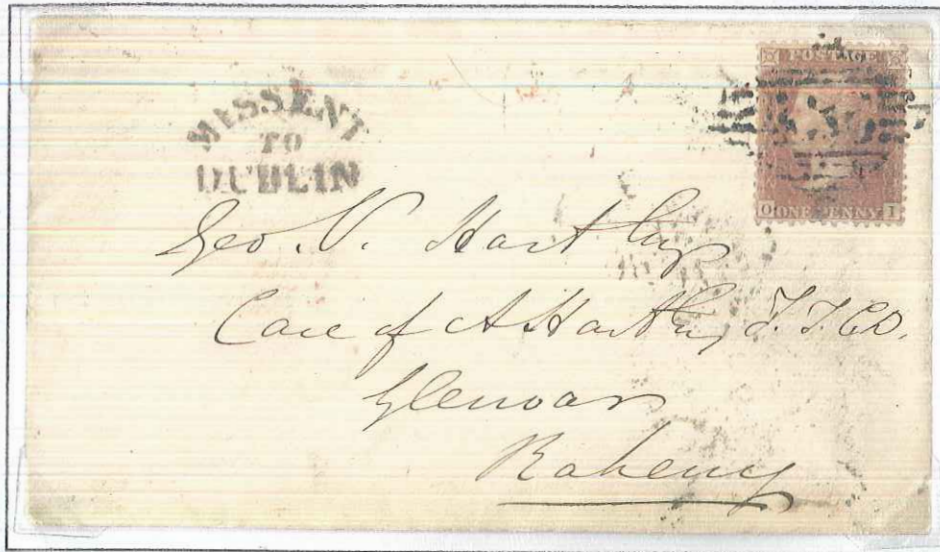 MISSENT
TO
DUBLIN
POSTAGE
O ONE PENNY I
Geo. V. Hartley
Care of A Hartley F.T.CD.
Glenoar
Raheny